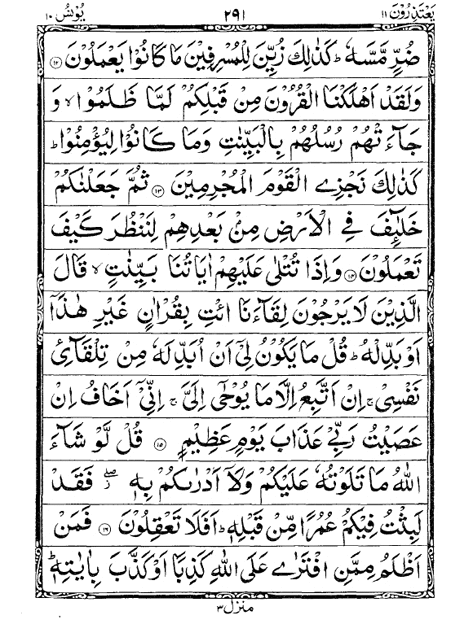 يعتذرون ١١ ٢٩١ يونس ١٠
ضُرٍّ مَّسَّهٗ ؕ كَذٰلِكَ زُيِّنَ لِلْمُسْرِفِيْنَ مَا كَانُوْا يَعْمَلُوْنَ ۝۱۲
وَلَقَدْ اَهْلَكْنَا الْقُرُوْنَ مِنْ قَبْلِكُمْ لَمَّا ظَلَمُوْا ۙ وَ
جَآءَتْهُمْ رُسُلُهُمْ بِالْبَيِّنٰتِ وَمَا كَانُوْا لِيُؤْمِنُوْا ؕ
كَذٰلِكَ نَجْزِي الْقَوْمَ الْمُجْرِمِيْنَ ۝۱۳ ثُمَّ جَعَلْنٰكُمْ
خَلٰٓئِفَ فِي الْاَرْضِ مِنْۢ بَعْدِهِمْ لِنَنْظُرَ كَيْفَ
تَعْمَلُوْنَ ۝۱۴ وَاِذَا تُتْلٰى عَلَيْهِمْ اٰيَاتُنَا بَيِّنٰتٍ ۙ قَالَ
الَّذِيْنَ لَا يَرْجُوْنَ لِقَآءَنَا ائْتِ بِقُرْاٰنٍ غَيْرِ هٰذَآ
اَوْ بَدِّلْهُ ؕ قُلْ مَا يَكُوْنُ لِيْٓ اَنْ اُبَدِّلَهٗ مِنْ تِلْقَآئِ
نَفْسِيْ ۚ اِنْ اَتَّبِعُ اِلَّا مَا يُوْحٰٓى اِلَيَّ ۚ اِنِّيْٓ اَخَافُ اِنْ
عَصَيْتُ رَبِّيْ عَذَابَ يَوْمٍ عَظِيْمٍ ۝۱۵ قُلْ لَّوْ شَآءَ
اللّٰهُ مَا تَلَوْتُهٗ عَلَيْكُمْ وَلَآ اَدْرٰىكُمْ بِهٖ ۖ ز فَقَدْ
لَبِثْتُ فِيْكُمْ عُمُرًا مِّنْ قَبْلِهٖ ؕ اَفَلَا تَعْقِلُوْنَ ۝۱۶ فَمَنْ
اَظْلَمُ مِمَّنِ افْتَرٰى عَلَى اللّٰهِ كَذِبًا اَوْ كَذَّبَ بِاٰيٰتِهٖ ؕ
منزل ٣